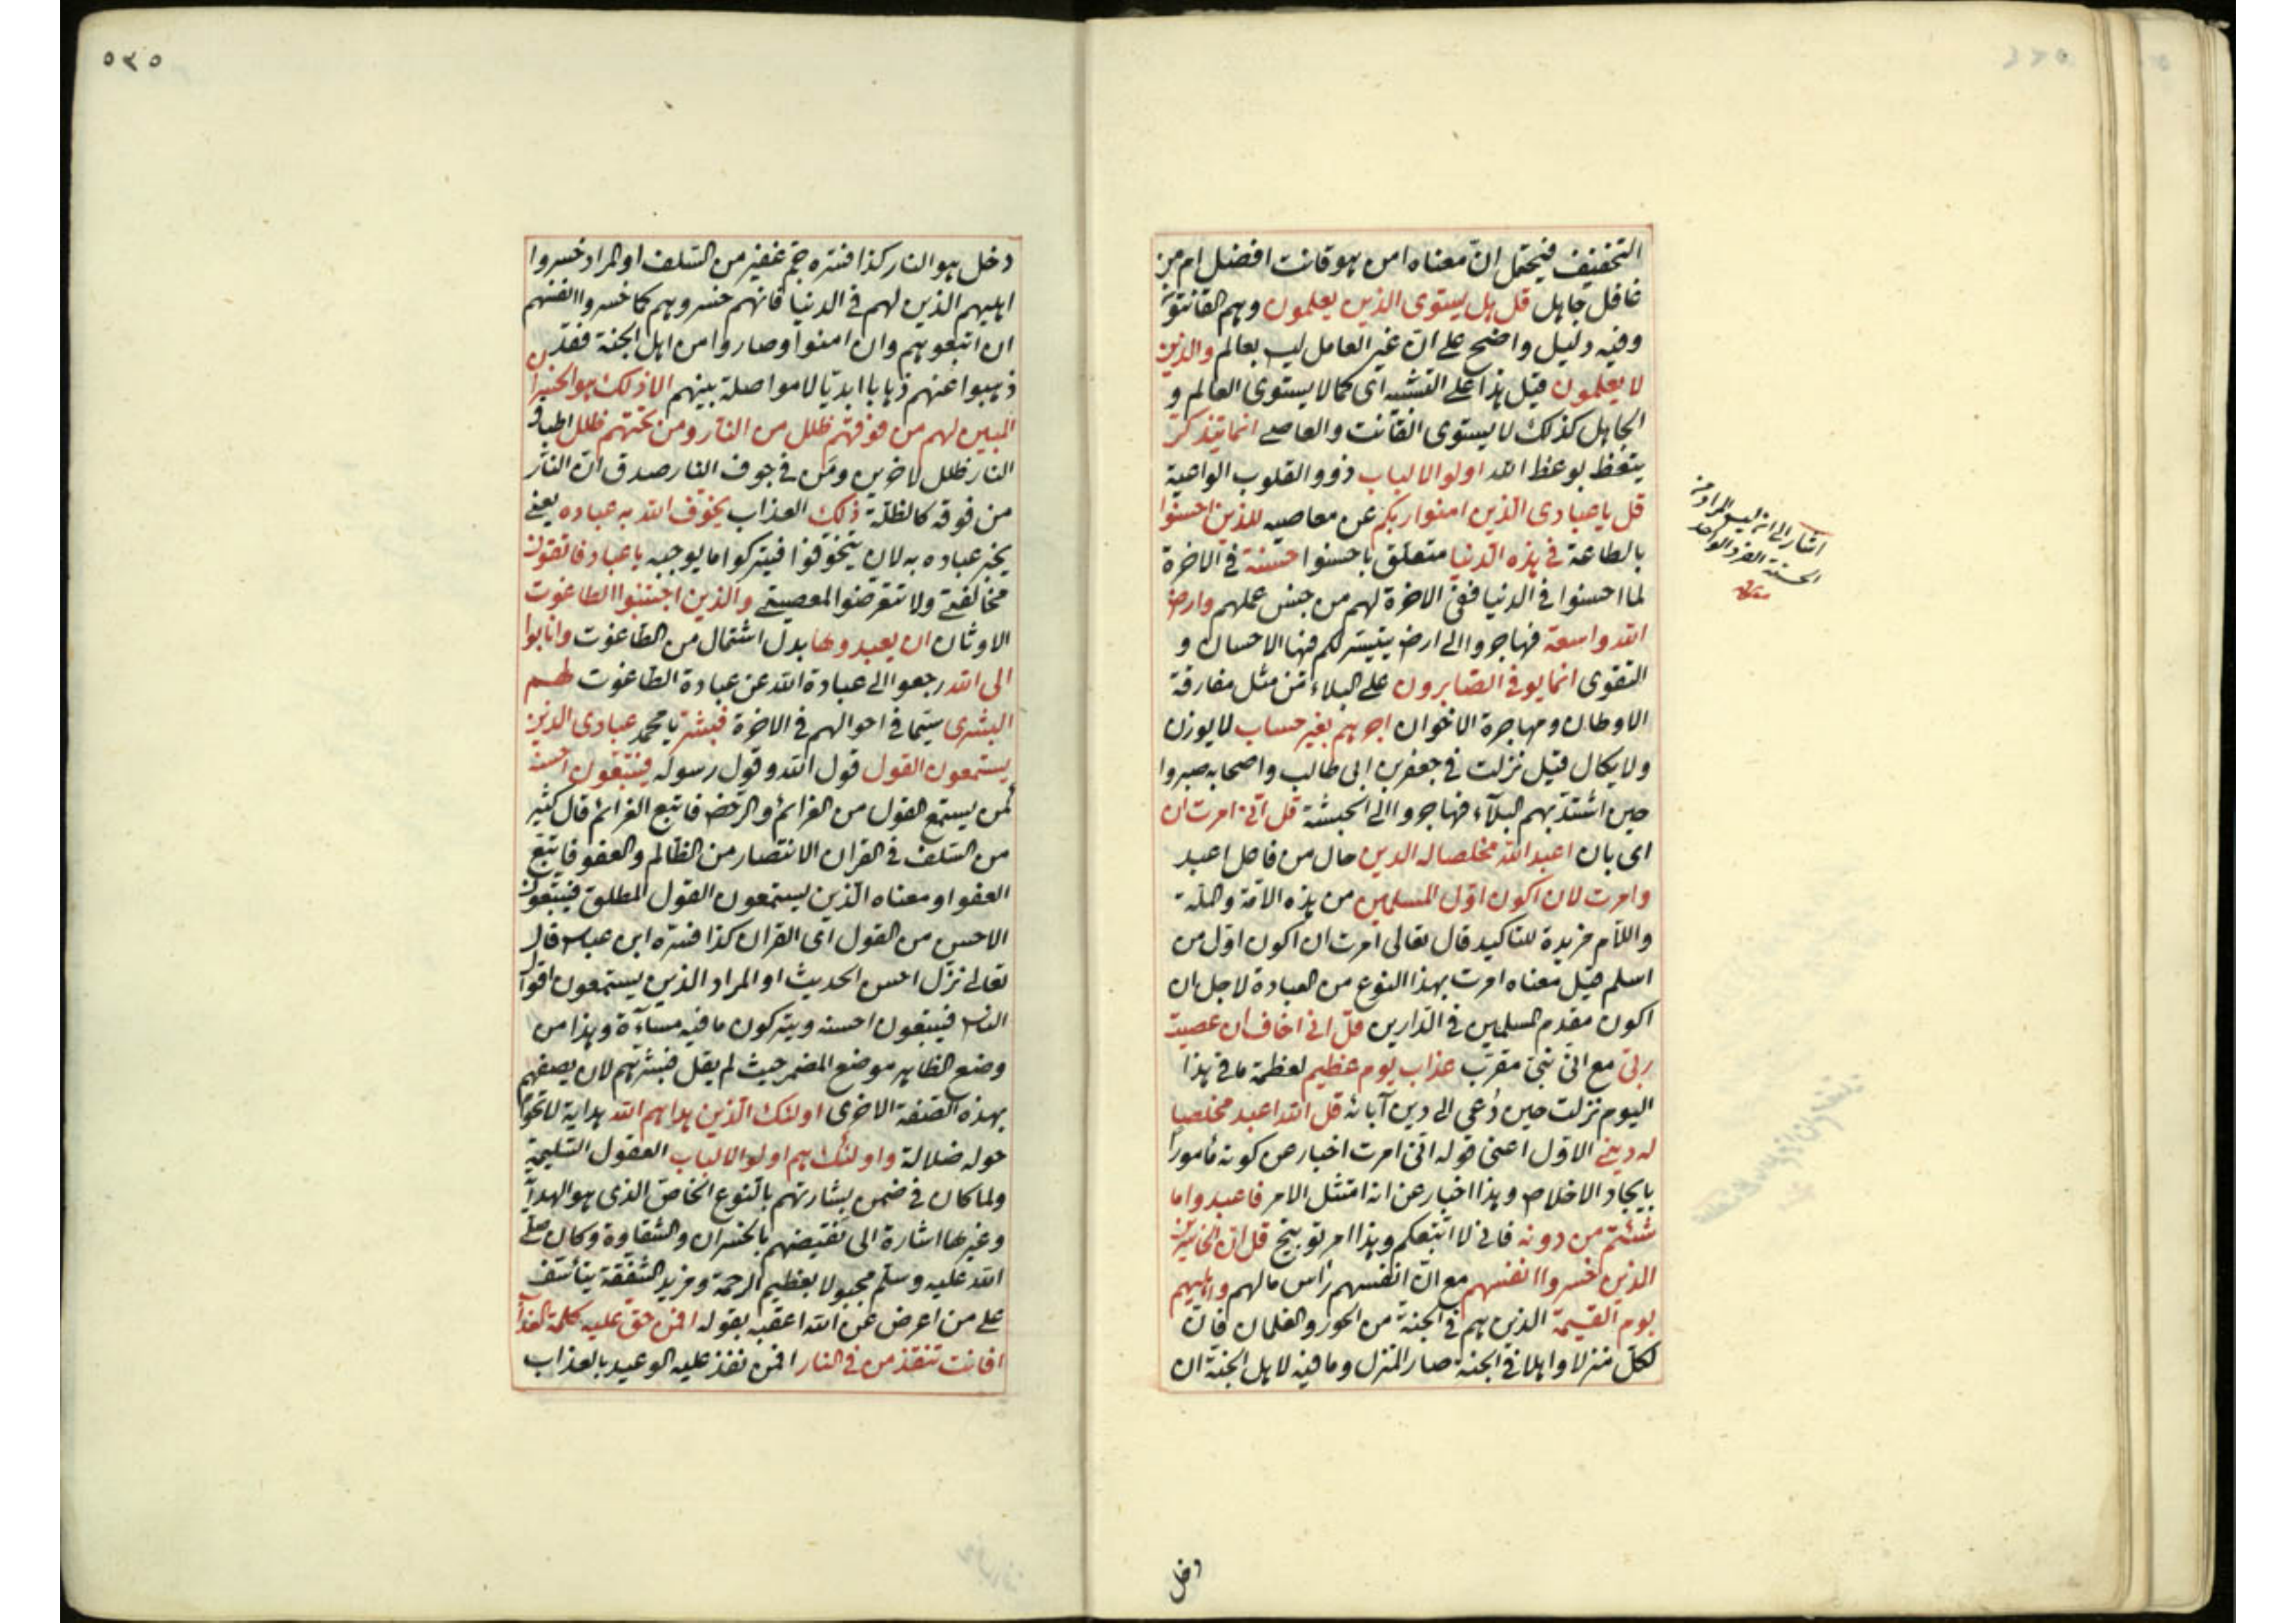 التخفيف فيحتمل ان معناه امن هو قانت افضل ام من
غافل جاهل قل هل يستوى الذين يعلمون وهم القانتون
وفيه دليل واضح على ان غير العامل ليس بعالم والذين
لا يعلمون قيل هذا على التشبيه اى كما لا يستوى العالم و
الجاهل كذلك لا يستوى القانت والعاصى انما يتذكر
يتعظ بوعظ الله اولوا الالباب ذوو القلوب الواعية
قل يا عبادى الذين امنوا ربكم عن معاصيه للذين احسنوا
بالطاعة فى هذه الدنيا متعلق باحسنوا حسنة فى الاخرة
لما احسنوا فى الدنيا ففى الاخرة لهم من جنس عملهم وارض
الله واسعة فهاجروا الى ارض يتيسر لكم فيها الاحسان و
التقوى انما يوفى الصابرون على البلاء من مثل مفارقة
الاوطان ومهاجرة الاخوان اجرهم بغير حساب لا يوزن
ولا يكال قيل نزلت فى جعفر بن ابى طالب واصحابه صبروا
حين اشتد بهم البلاء فهاجروا الى الحبشة قل انى امرت ان
اى بان اعبد الله مخلصا له الدين حال من فاعل اعبد
وامرت لان اكون اول المسلمين من هذه الامة والملة
واللام مزيدة للتاكيد قال تعالى امرت ان اكون اول من
اسلم قيل معناه امرت بهذا النوع من العبادة لاجل ان
اكون مقدم المسلمين فى الدارين قل انى اخاف ان عصيت
ربى مع انى نبى مقرب عذاب يوم عظيم لعظمة ما فى هذا
اليوم نزلت حين دعى الى دين آبائه قل الله اعبد مخلصا
له دينى الاول اعنى قوله انى امرت اخبار عن كونه مأمورا
بايجاد الاخلاص وهذا اخبار عن انه امتثل الامر فاعبدوا ما
شئتم من دونه فانى لا اتبعكم وهذا امر توبيخ قل ان الخاسرين
الذين خسروا انفسهم مع ان انفسهم رأس مالهم واهليهم
يوم القيمة الذين هم فى الجنة من الحور والغلمان فان
لكل منزلا واهلا فى الجنة صار المنزل وما فيه لاهل الجنة ان
اشار الى انه ليس المراد من
الحسنة الفرد الواحد
دخل
٥٣٥
دخل هو النار كذا فسره جم غفير من السلف او المراد خسروا
اهليهم الذين لهم فى الدنيا فانهم خسروهم كما خسروا انفسهم
ان اتبعوهم وان امنوا وصاروا من اهل الجنة فقد
ذهبوا عنهم ذهابا ابديا لا مواصلة بينهم الا ذلك هو الخسران
المبين لهم من فوقهم ظلل من النار ومن تحتهم ظلل اطباق
النار ظلل لاخرين ومن فى جوف النار صدق ان النار
من فوقه كالظلة ذلك العذاب يخوف الله به عباده يعنى
يخبر عباده به لان يتخوفوا فيتركوا ما يوجبه يا عباد فاتقون
مخالفتى ولا تتعرضوا لمعصيتى والذين اجتنبوا الطاغوت
الاوثان ان يعبدوها بدل اشتمال من الطاغوت وانابوا
الى الله رجعوا الى عبادة الله عن عبادة الطاغوت لهم
البشرى سيما فى احوالهم فى الاخرة فبشر يا محمد عبادى الذين
يستمعون القول قول الله وقول رسوله فيتبعون احسنه
كمن يستمع القول من العزائم والرخص فاتبع العزائم قال كثير
من السلف فى القران الانتصار من الظالم والعفو فاتبع
العفو او معناه الذين يستمعون القول المطلق فيتبعون
الاحسن من القول اى القران كذا فسره ابن عباس قال
تعالى نزل احسن الحديث او المراد الذين يستمعون اقوال
الناس فيتبعون احسنه ويتركون ما فيه مساءة وهذا من
وضع الظاهر موضع المضمر حيث لم يقل فبشرهم لان يصفهم
بهذه الصفة الاخرى اولئك الذين هداهم الله هداية لا تحوم
حوله ضلالة واولئك هم اولوا الالباب العقول السليمة
ولما كان فى ضمن بشارتهم بالنوع الخاص الذى هو الهداية
وغيرها اشارة الى نقيضهم بالخسران والشقاوة وكان صلى
الله عليه وسلم مجبولا بعظيم الرحمة ومزيد الشفقة يتأسف
على من اعرض عن الله اعقبه بقوله افمن حق عليه كلمة العذاب
افانت تنقذ من فى النار افمن نفذ عليه الوعيد بالعذاب